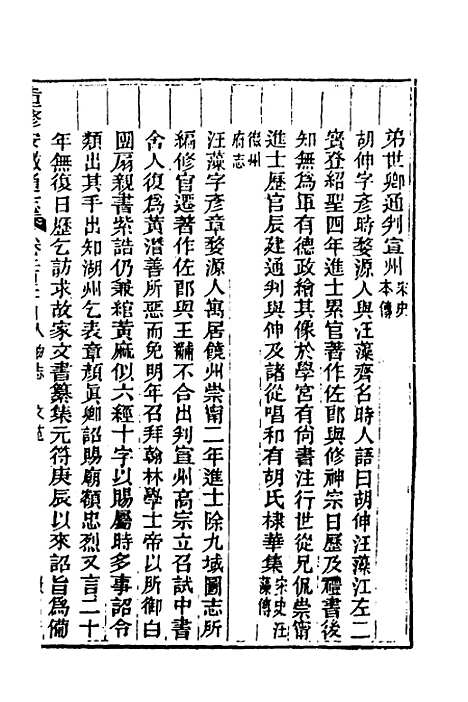 弟世卿通判宣州宋史本傳
胡伸字彥時婺源人與汪藻齊名時人語曰胡伸汪藻江左二
寳登紹聖四年進士累官著作佐郎與修神宗日歷及禮書後
知無爲軍有德政繪其像於學宮有尙書注行世從兄侃崇甯
進士歷官辰建通判與伸及諸從唱和有胡氏棣華集宋史汪藻傳
徽州府志
汪藻字彥章婺源人寓居饒州崇甯二年進士除九域圖志所
編修官遷著作佐郎與王黼不合出判宣州高宗立召試中書
舍人復爲黃潛善所惡而免明年召拜翰林學士帝以所御白
團扇親書紫誥仍兼綰黃麻似六經十字以賜屬時多事詔令
類出其手出知湖州乞表章顏眞卿詔賜廟額忠烈又言二十
年無復日歷乞訪求故家文書纂集元符庚辰以來詔旨爲備
重修安徽通志 人物志 文苑